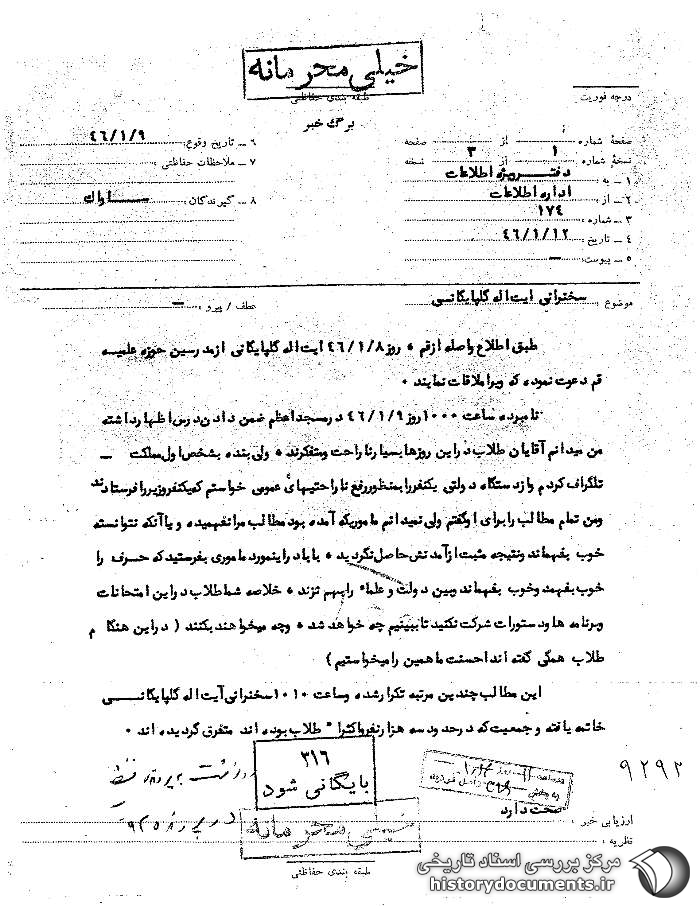 خیلی محرمانه
طبقه بندی حفاظتی
برگ خبر
درجه فوریت
صفحهٔ شماره ۱ از صفحه
نسخهٔ شماره ۱ از ۳ نسخه
۱ ــ به : دفتر ویژه اطلاعات
۲ ــ از : اداره اطلاعات
۳ ــ شماره : ۱۷۴
۴ ــ تاریخ : ۴۶/۱/۱۲
۵ ــ پیوست : ــ
۶ ــ تاریخ وقوع : ۴۶/۱/۹
۷ ــ ملاحظات حفاظتی :
۸ ــ گیرندگان : ساواك
موضوع : سخنرانی ایت اله گلپایگانی
عطف / پیرو : ــ
طبق اطلاع واصله ازقم ٠ روز ۴۶/۱/۸ ایت اله گلپایگانی ازمدرسین حوزه علمیه
قم دعوت نموده که ویرا ملاقات نمایند ٠
نامبرده ساعت ۱۰۰۰ روز ۴۶/۱/۹ درمسجد اعظم ضمن دادن درس اظهارداشته
من میدانم آقایان طلاب دراین روزها بسیار ناراحت ومتفکرند ٠ ولی بنده بشخص اول مملکت ــ
تلگراف کردم وازدستگاه دولتی یکنفررا بمنظور رفع ناراحتیهای عمومی خواستم که یکنفروزیررا فرستادند
ومن تمام مطالب را برای اوگفتم ولی نمیدانم ماموریکه آمده بود مطالب مرا نفهمیده و یا آنکه نتوانسته
خوب بفهماند ونتیجه مثبت ازآمدنش حاصل نگردید ٠ باید دراینمورد ماموری بفرستید که حرف را
خوب بفهمد وخوب بفهماند وبین دولت وعلماء رابهم نزند ٠ خلاصه شما طلاب دراین امتحانات
وبرنامه ها ودستورات شرکت نکنید تا ببینیم چه خواهد شد ٠ وچه میخواهند بکنند ( دراین هنگام
طلاب همگی گفته اند احسنت ما همین رامیخواستیم )
این مطالب چندین مرتبه تکرارشده وساعت ۱۰۱۰ سخنرانی آیت اله گلپایگانی
خاتمه یافته و جمعیت که درحدود سه هزارنفرواکثرا" طلاب بوده اند متفرق گردیده اند ٠
۳۱۶
بایگانی شود
۹۲۹۲
صحت دارد
ارزیابی خبر :
نظریه :
خیلی محرمانه
طبقه بندی حفاظتی
مرکز بررسی اسناد تاریخی
historydocuments.ir